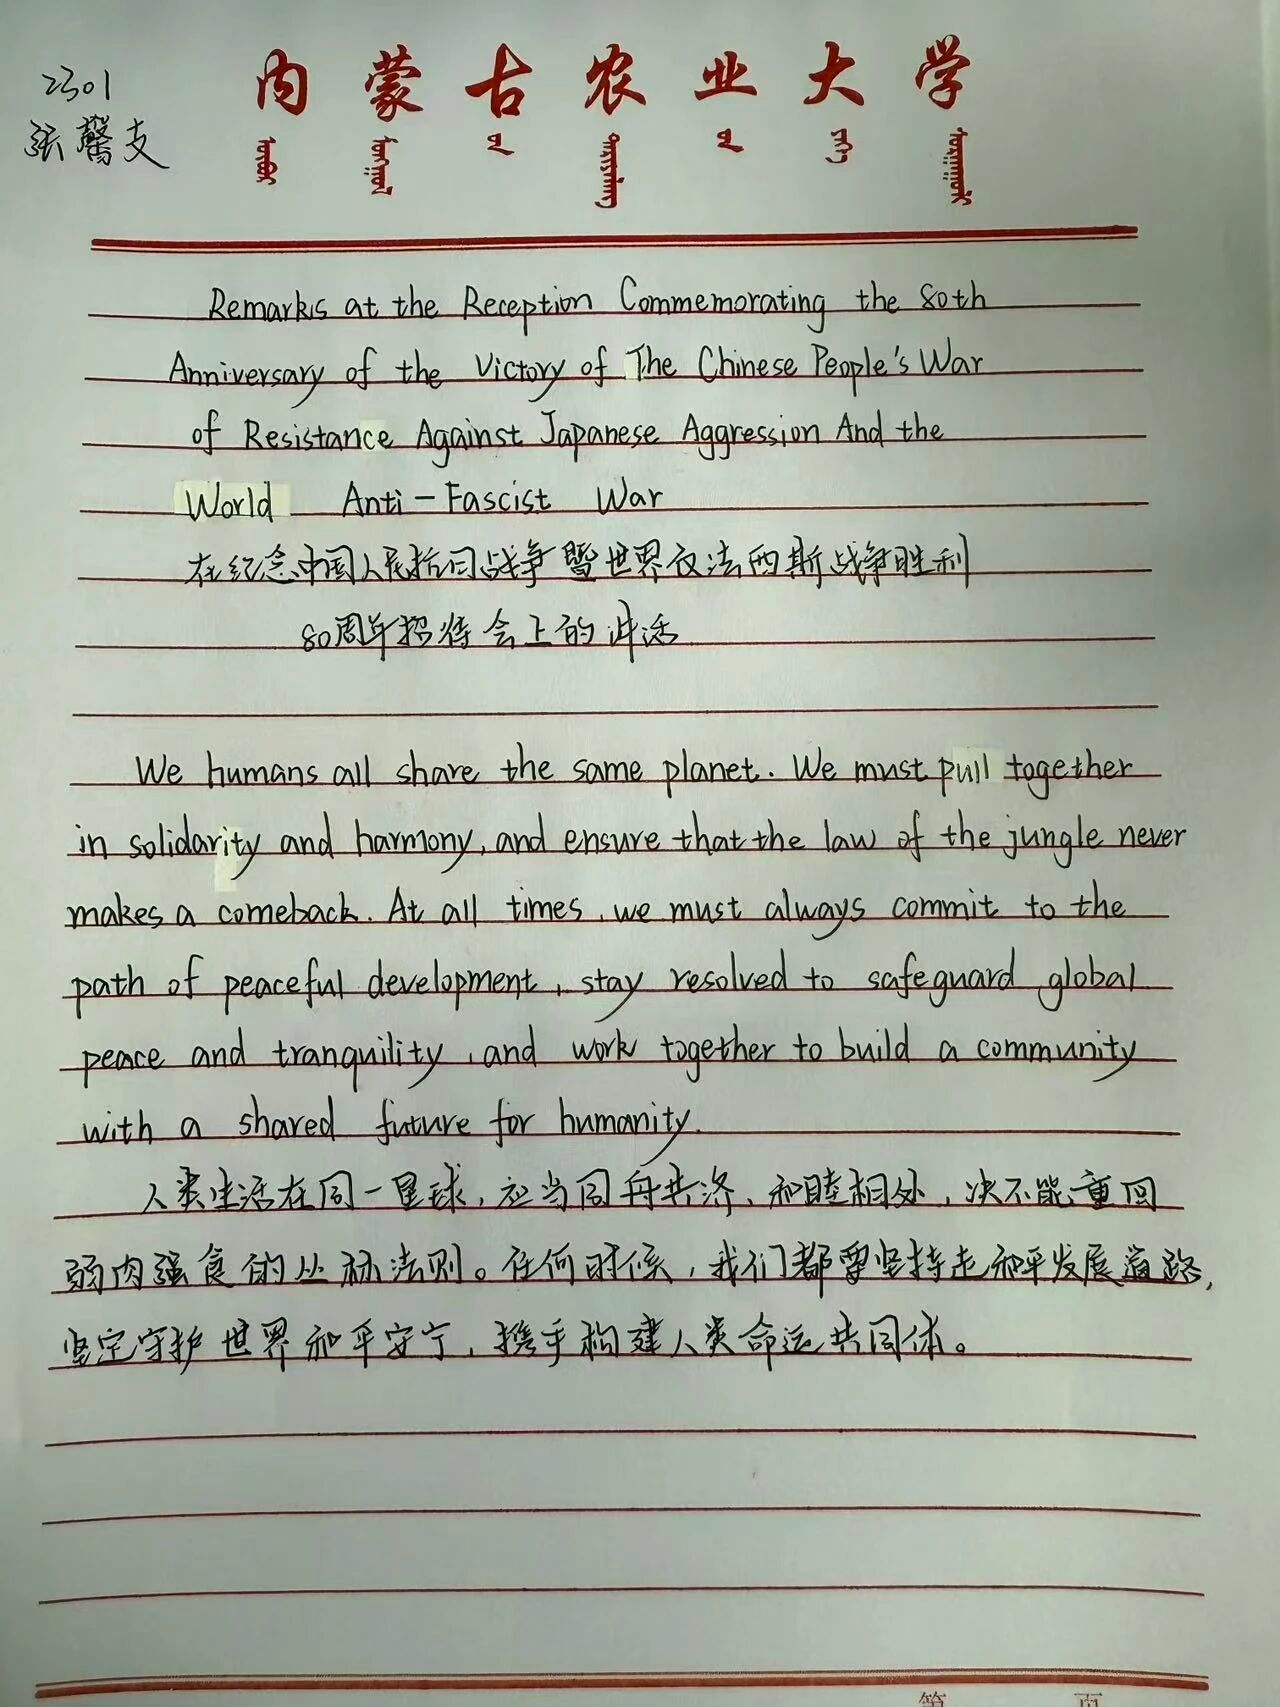 2301
内蒙古农业大学
张 支
Remarks at the Reception Commemorating the 80th
Anniversary of the Victory of The Chinese People's War
of Resistance Against Japanese Aggression And the
World Anti-Fascist War
在纪念中国人民抗日战争暨世界反法西斯战争胜利
80周年招待会上的讲话
We humans all share the same planet. We must pull together
in solidarity and harmony, and ensure that the law of the jungle never
makes a comeback. At all times, we must always commit to the
path of peaceful development, stay resolved to safeguard global
peace and tranquility, and work together to build a community
with a shared future for humanity.
人类生活在同一星球，应当同舟共济、和睦相处，决不能重回
弱肉强食的丛林法则。任何时候，我们都要坚持走和平发展道路，
坚定守护世界和平安宁，携手构建人类命运共同体。
第 页